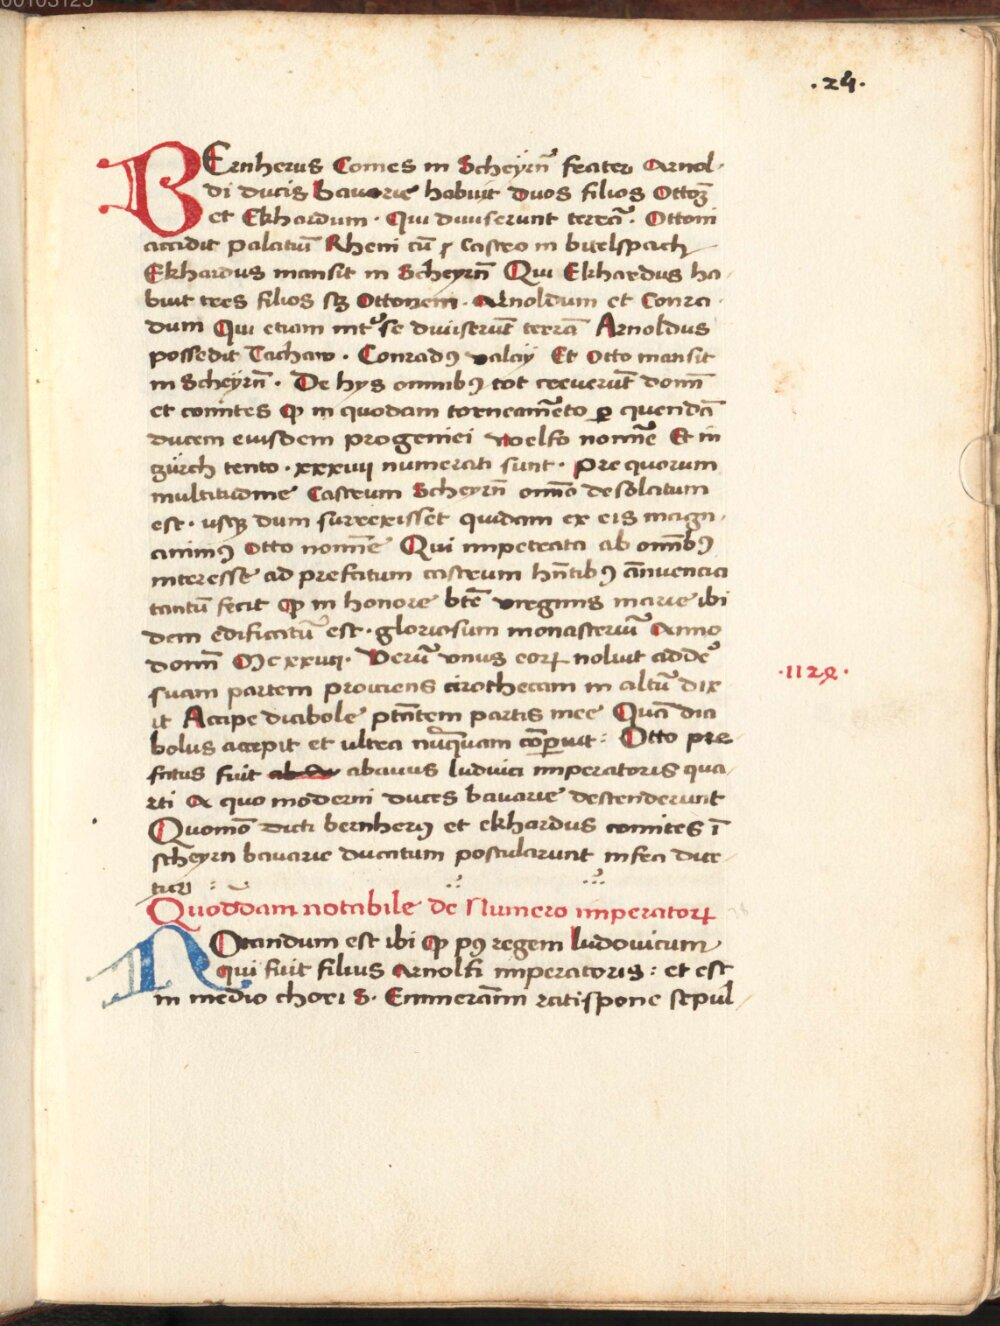 00103125
.24.
BErnherus Comes in Scheyrn̄ frater Arnol-
di ducis bavarie habuit duos filios Ottoꝫ
et Ekhardum · Qui diuiserunt terrā · Ottoni
accidit palatiū Rheni cū castro in
Ekhardus mansit in Scheyrn̄ Qui Ekhardus ha-
buit tres filios sꝫ Ottonem · Arnoldum et Conra-
dum Qui etiam int̉ se diuiserūt terrā Arnoldus
possedit Dachaw · Conradꝰ valaÿ Et Otto mansit
in Scheyrn̄ · De hys omnibꝰ tot creuerūt domī
et comites ꝙ in quodam torneamēto ꝑ quendā
ducem eiusdem progeniei woelfo nomīe Et in
zürch tento · xxxiiii numerati sunt · Pre quorum
multitudine Castrum Scheyrn̄ omīo desolatum
est · usqꝫ dum surrexisset quidam ex eis magn-
animꝰ Otto nomīe Qui impetrata ab omībꝰ
interesse ad prefatum castrum hn̄tibꝰ annuencia
tantū fecit ꝙ in honore btē virginis marie ibi
dem edificatū est · gloriosum monasteriū Anno
domī Mcxxviiii · Verū vnus eorꝝ noluit adde᷒
suam partem proiciens cirothecam in altū dix-
it Accipe diabole ptn̄tem partis mee Quā dia
bolus accepit et ultra nūquam cōꝑuit : Otto pre
fatus fuit abauus ludwici imperatoris qua-
rti A quo moderni duces bavarie descenderunt
Quomō dicti bernherꝰ et ekhardus comites ī
scheyrn bavarie ducatum postularunt infra dice-
tur :
.1129.
Quoddam notabile de Numero imperatorꝝ
NOtandum est ibi ꝙ pꝰ regem ludovicum
qui fuit filius Arnolfi imperatoris : et est
in medio chori S. Emmerammi ratispone sepul-